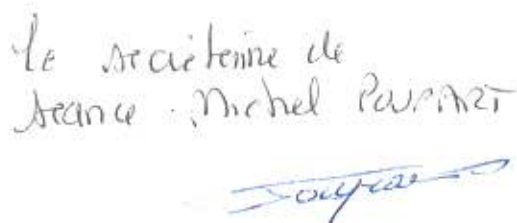 Le secrétaire de
séance. Michel POUPART